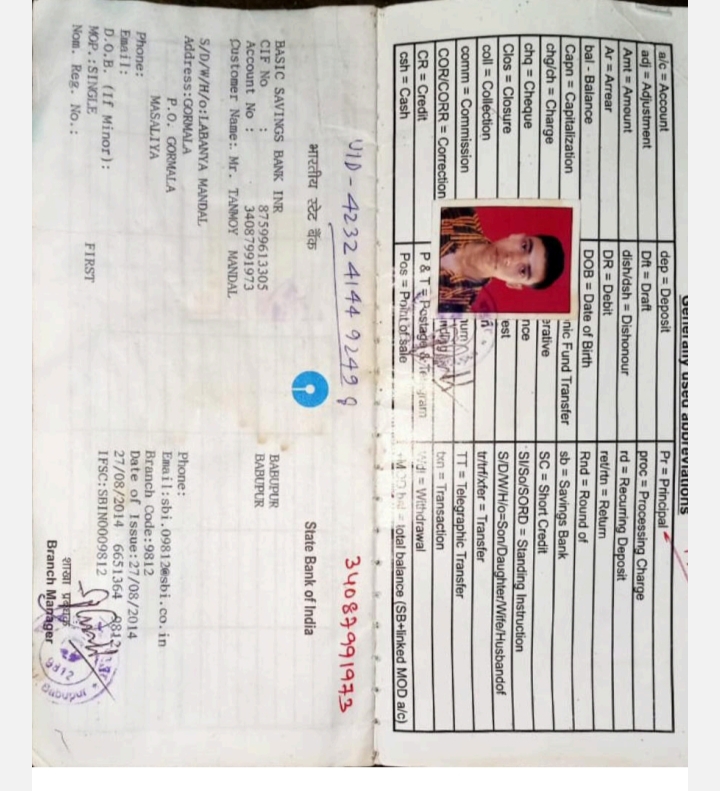 Generally used abbreviations
a/c = Account dep = Deposit Pr = Principal
adj = Adjustment Dft = Draft proc = Processing Charge
Amt = Amount dish/dsh = Dishonour rd = Recurring Deposit
Ar = Arrear DR = Debit ret/rtn = Return
bal - Balance DOB = Date of Birth Rnd = Round of
Capn = Capitalization nic Fund Transfer sb = Savings Bank
chg/ch = Charge erative SC = Short Credit
chq = Cheque nce SI/So/SORD = Standing Instruction
Clos = Closure est S/D/W/H/o=Son/Daughter/Wife/Husbandof
coll = Collection tr/trf/xfer = Transfer
comm = Commission TT = Telegraphic Transfer
COR/CORR = Correction txn = Transaction
CR = Credit P & T = Postage & Telegram Wdl = Withdrawal
csh = Cash Pos = Point of sale total balance (SB+linked MOD a/c)
UID - 4232 4144 9249 34087991973
भारतीय स्टेट बैंक State Bank of India
BASIC SAVINGS BANK INR BABUPUR
CIF No : 87599613305 BABUPUR
Account No : 34087991973
Customer Name:. Mr. TANMOY MANDAL
S/D/W/H/o:LABANYA MANDAL
Address:GORMALA
P.O. GORMALA
MASALIYA
Phone:
Email:
D.O.B. (If Minor):
MOP.:SINGLE FIRST
Nom. Reg. No.:
Phone:
Email:sbi.09812@sbi.co.in
Branch Code:9812
Date of Issue:27/08/2014
27/08/2014 6651364 9812
IFSC:SBIN0009812
शाखा प्रबंधक
Branch Manager
9812
Babupur